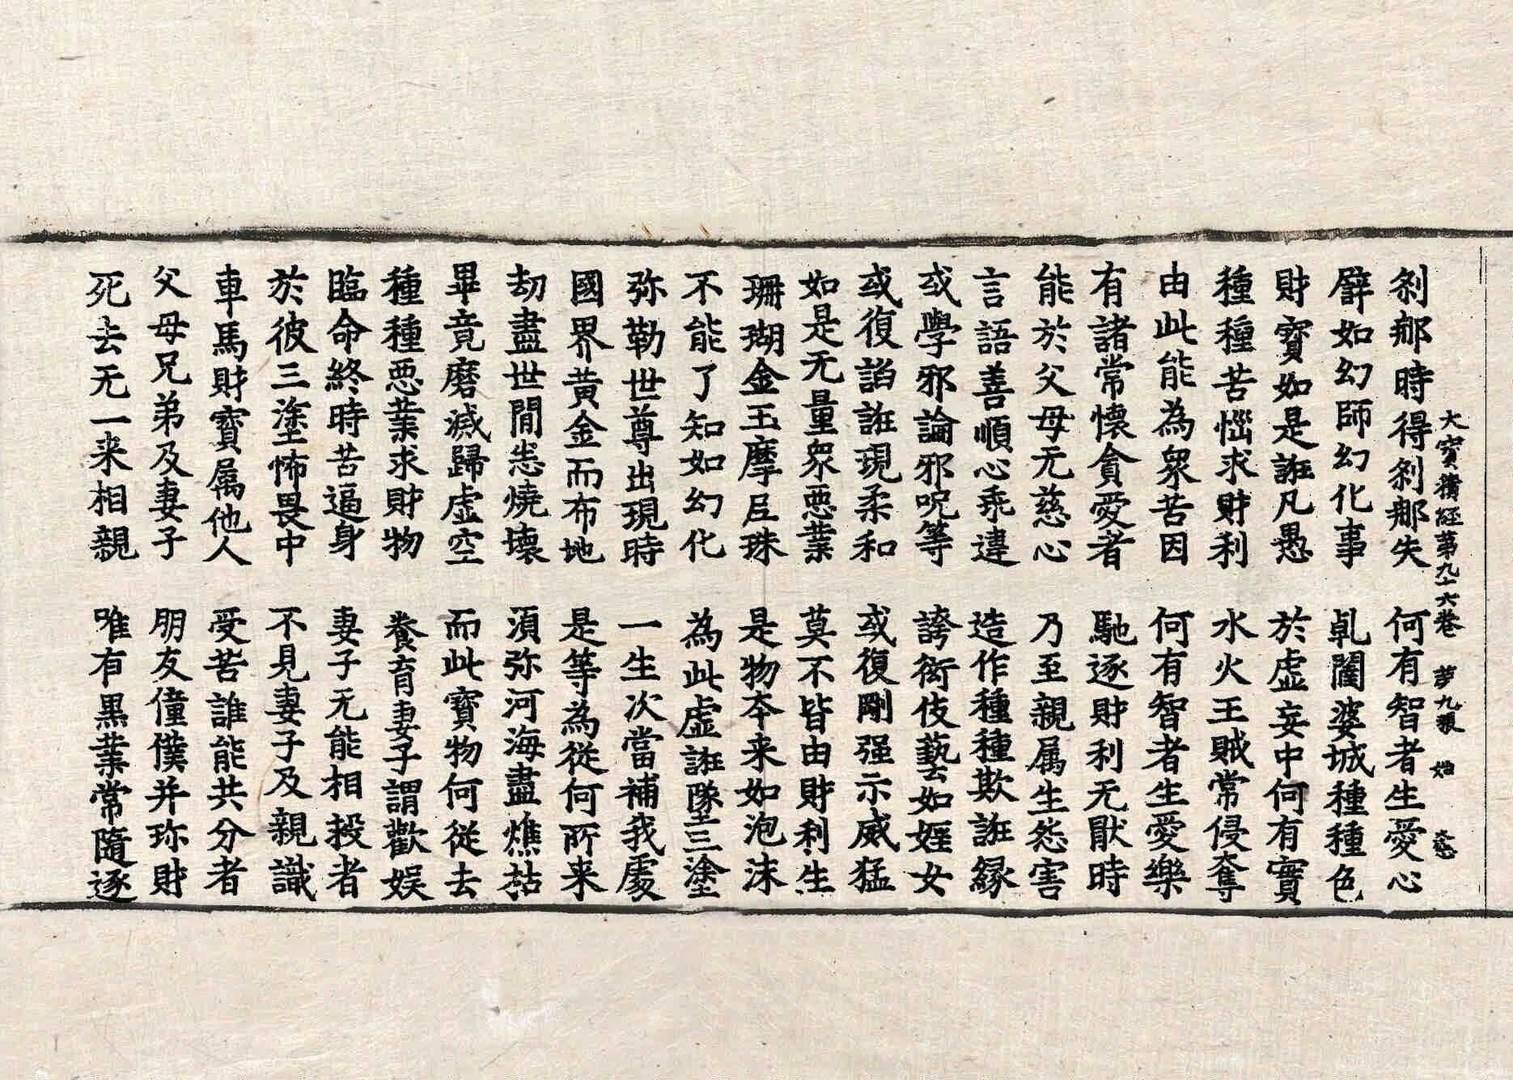 大寶積經第九十六卷 第九張 始
刹那時得刹那失 何有智者生愛心
譬如幻師幻化事 乹闥婆城種種色
財寶如是誑凡愚 於虛妄中何有實
種種苦惱求財利 水火王賊常侵奪
由此能為衆苦因 何有智者生愛樂
有諸常懷貪愛者 馳逐財利无厭時
能於父母无慈心 乃至親属生怨害
言語善順心乖違 造作種種欺誑縁
或學邪論邪呪等 誇衒伎藝如婬女
或復諂誑現柔和 或復剛强示威猛
如是无量衆惡業 莫不皆由財利生
珊瑚金玉摩尼珠 是物夲来如泡沫
不能了知如幻化 為此虛誑墜三塗
弥勒世尊出現時 一生次當補我處
國界黃金而布地 是等為從何所来
劫盡世間悉燒壞 湏弥河海盡燋枯
畢竟磨滅歸虛空 而此寶物何從去
種種惡業求財物 養育妻子謂歡娱
臨命終時苦逼身 妻子无能相投者
於彼三塗怖畏中 不見妻子及親識
車馬財寶属他人 受苦誰能共分者
父母兄弟及妻子 朋友僮僕并珎財
死去无一来相親 唯有黒業常隨逐